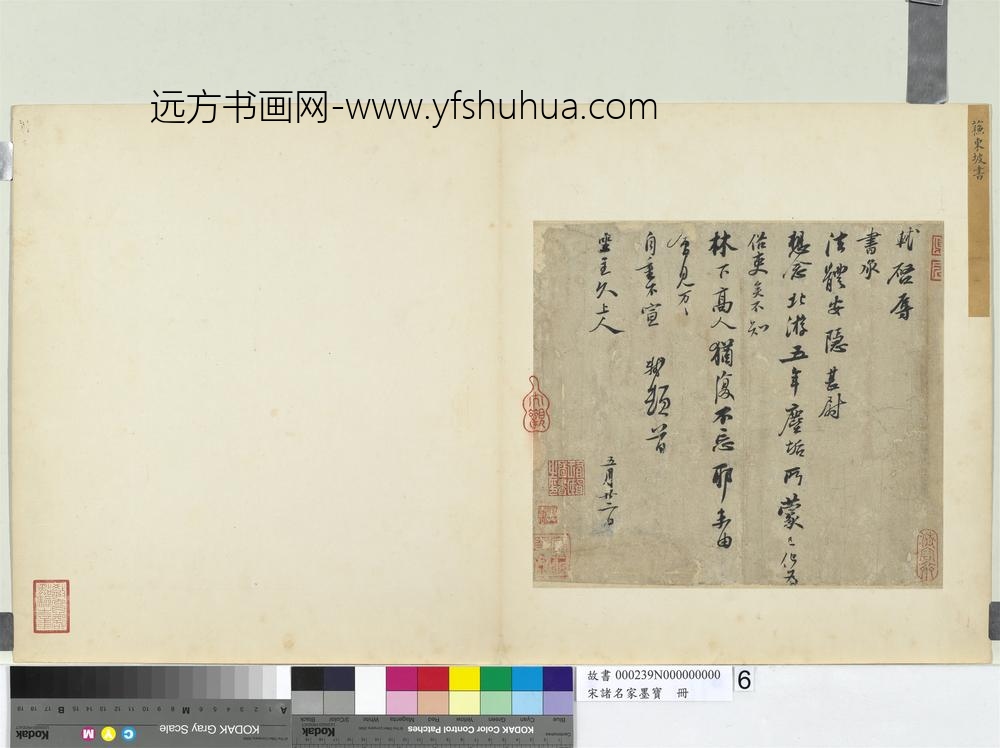 远方书画网-www.yfshuhua.com
蘓東坡書
軾啓辱
書承
法體安隱甚尉
想念北游五年塵垢所蒙已化爲
俗吏矣不知
林下高人猶復不忘耶未由
會見万〻
自重不宣 軾頓首
坐主久上人
五月廿二日
KODAK Gray Scale
Kodak
C
Y
M
A 1 2 3 4 5 6 M 8 9 10 11 12 13 14 15 B 17 18 19
KODAK Color Control Patches
Kodak
Blue
Cyan
Green
Yellow
Red
Magenta
White
3/Color
Black
故書 000239N000000000
宋諸名家墨寶 冊
6